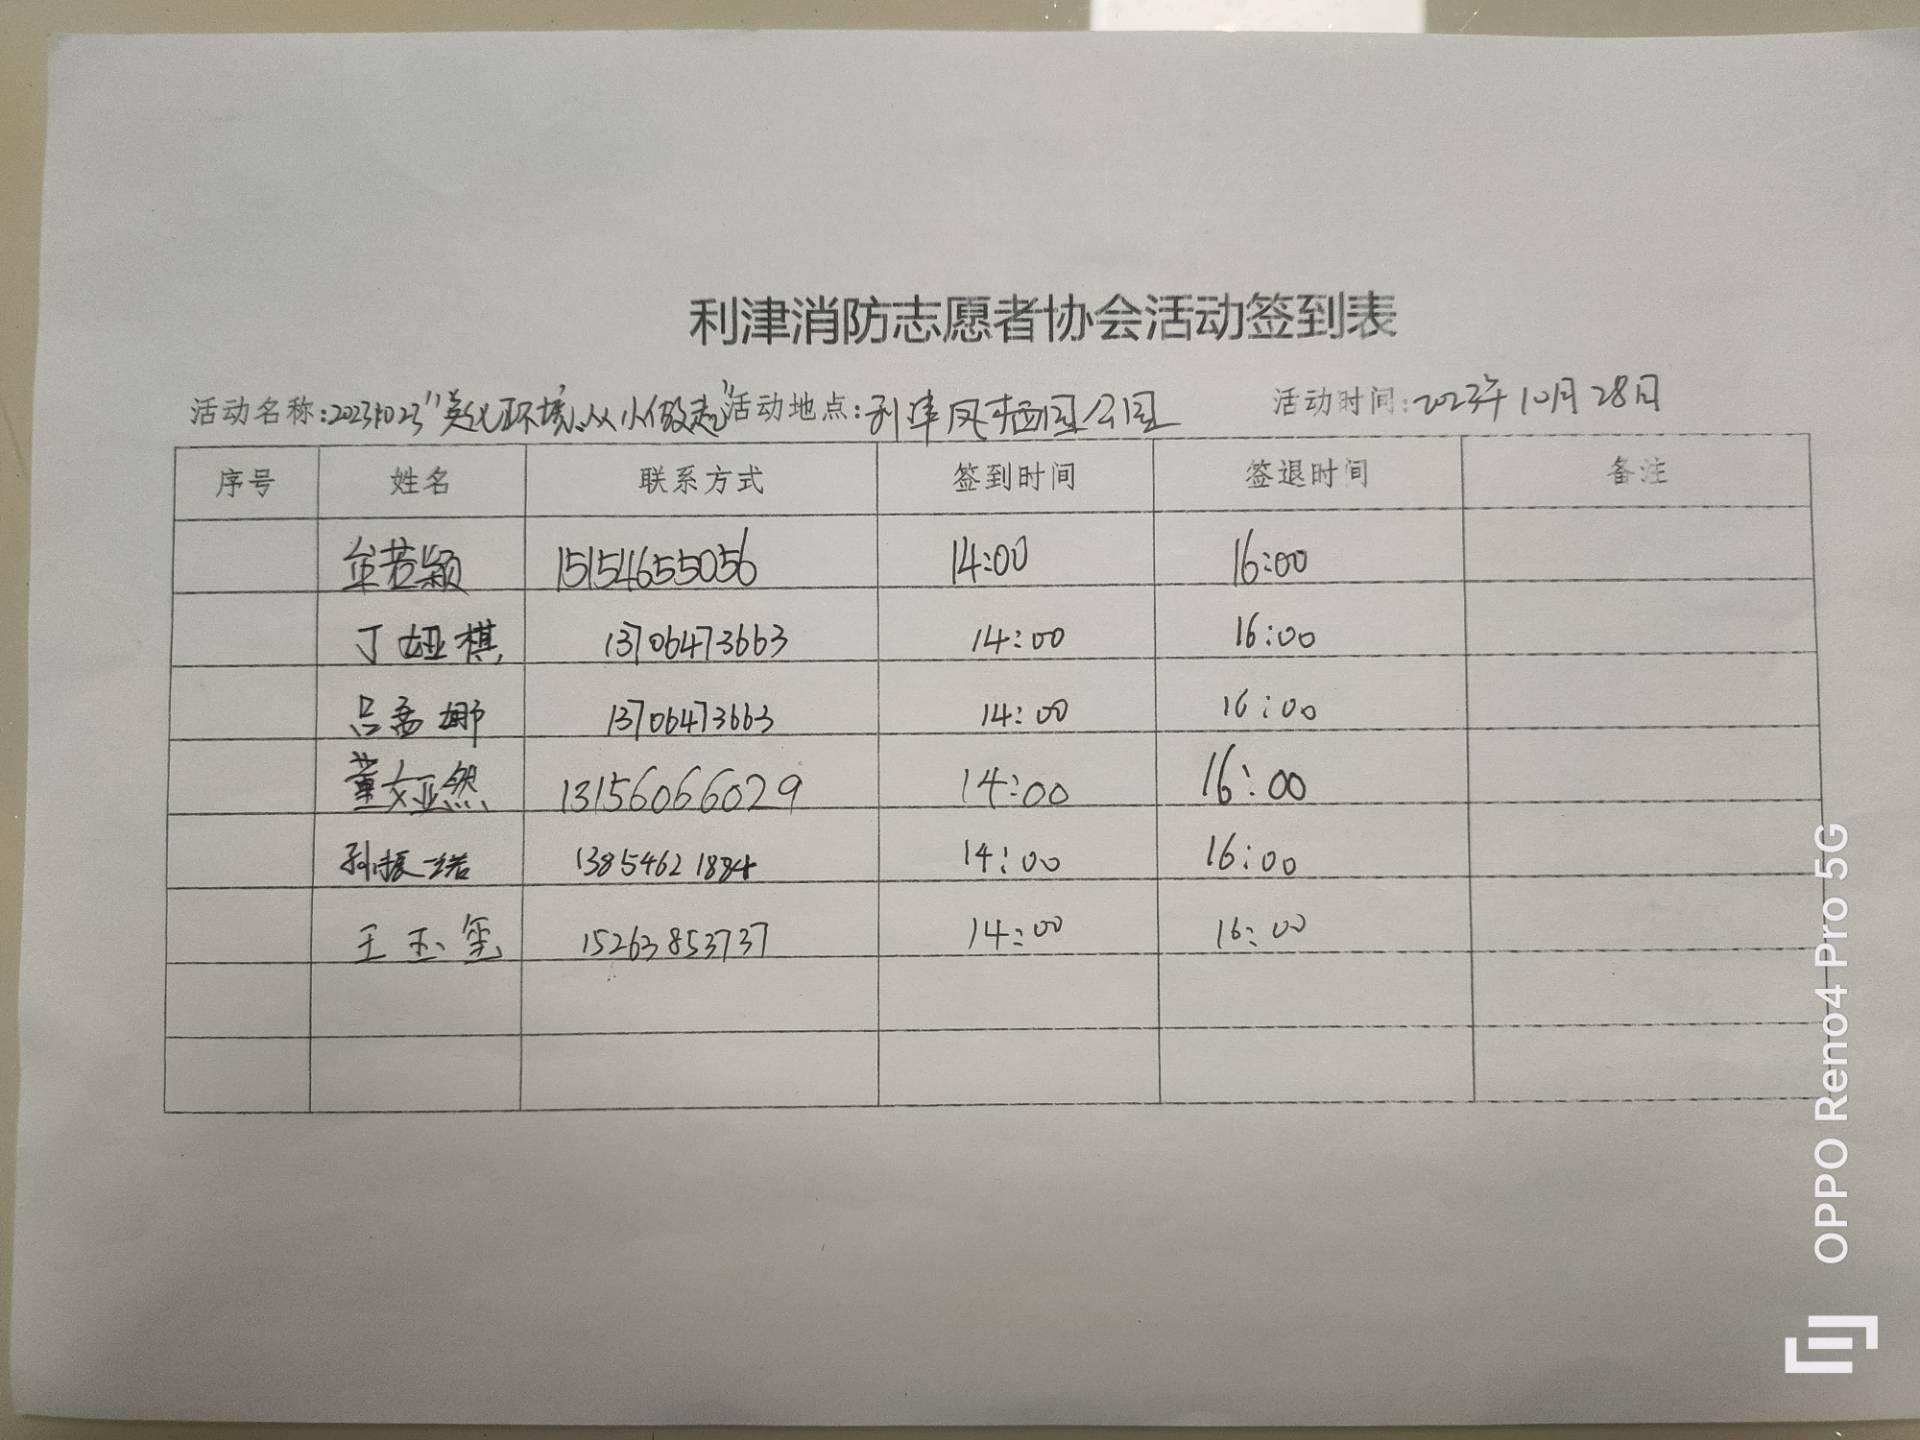 利津消防志愿者协会活动签到表
活动名称:20231023"美化环境、从小做起" 活动地点:利津凤栖园公园 活动时间:2023年10月28日
序号 姓名 联系方式 签到时间 签退时间 备注
牟若颖 15154655056 14:00 16:00
丁娅棋 13706473663 14:00 16:00
吕孟娜 13706473663 14:00 16:00
董娅然 13156066029 14:00 16:00
孙振诺 13854621884 14:00 16:00
王玉玺 15263853737 14:00 16:00
OPPO Reno4 Pro 5G